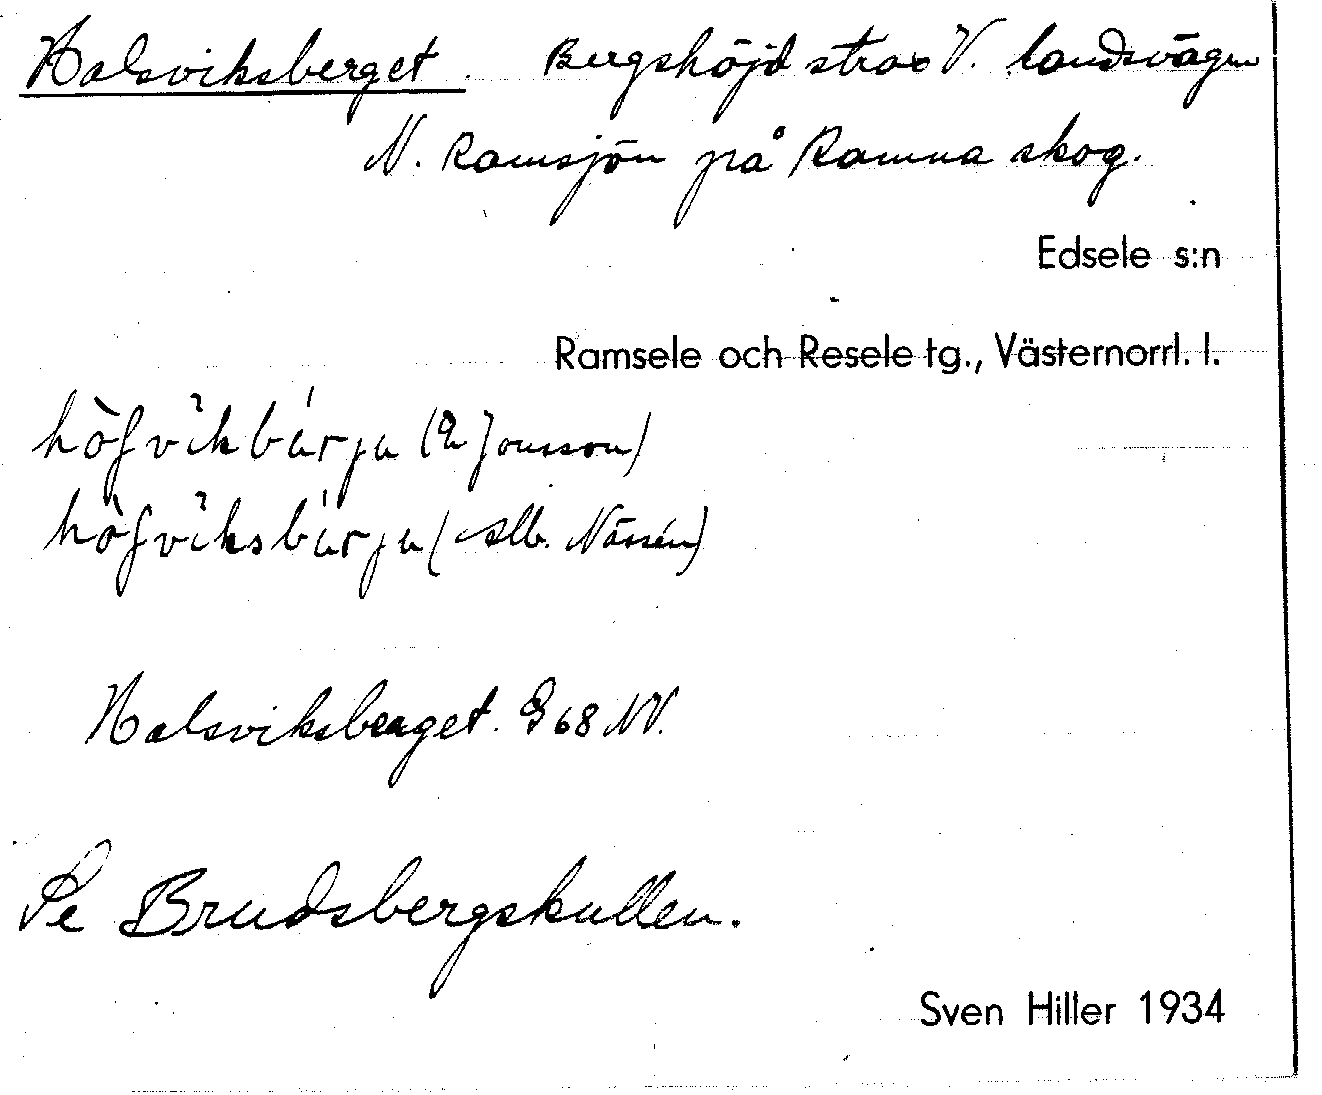 Halsviksberget. Bergshöjd strax V. landsvägen
N. Ramsjön på Ramna skog.
Edsele s:n
Ramsele och Resele tg., Västernorrl. l.
Jonsson)
(Alb. Nässén)
Halsviksberget. G 68 NV.
Se Brudsbergskullen.
Sven Hiller 1934